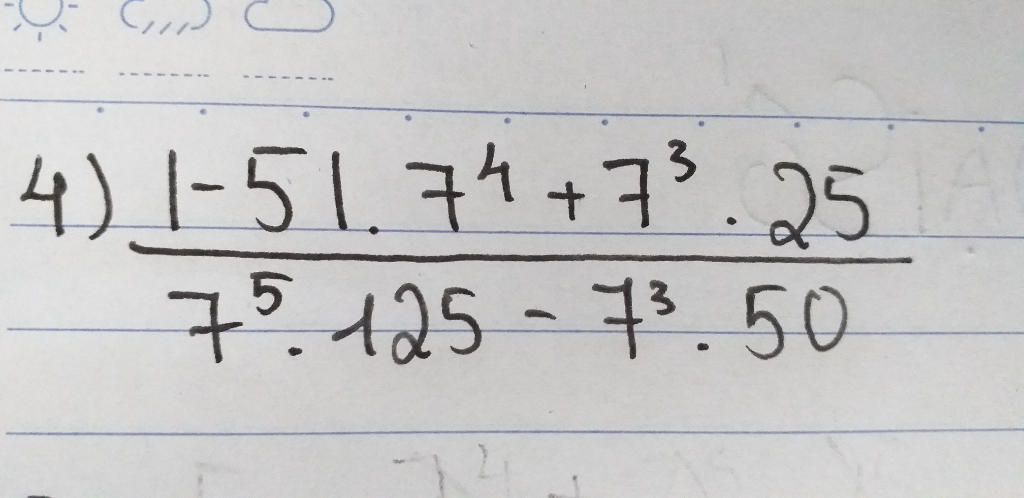 4) |-5|. 7⁴ + 7³ . 25
7⁵ . 125 - 7³ . 50